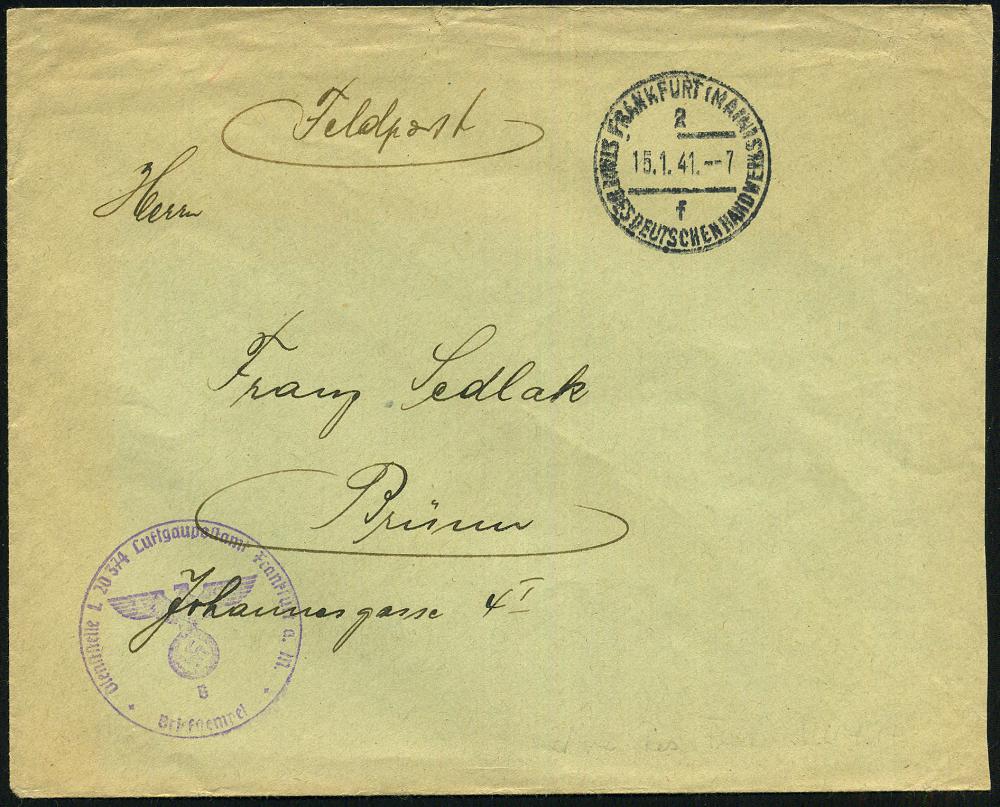 Feldpost
FRANKFURT (MAIN) STADT DES DEUTSCHEN HANDWERKS
a
15.1.41.--7
f
Herrn
Franz Sedlak
Brünn
Johannesgasse 4 I
Dienststelle L 20374 Luftgaupostamt Frankfurt a. M.
B
Briefstempel